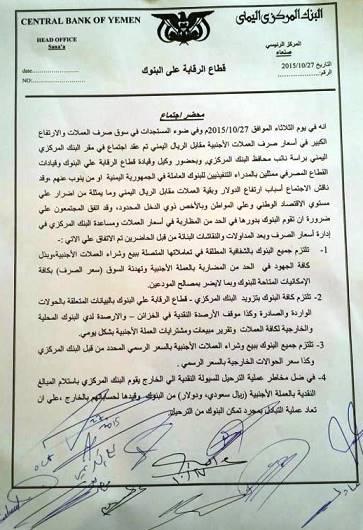 CENTRAL BANK OF YEMEN
البنك المركزي اليمني
HEAD OFFICE
Sana'a
المركز الرئيسي
صنعاء
date:
قطاع الرقابة على البنوك
التاريخ 2015/10/27
NO:
الرقم:
محضر إجتماع
انه في يوم الثلاثاء الموافق 2015/10/27م وفي ضوء المستجدات في سوق صرف العملات والارتفاع
الكبير في أسعار صرف العملات الأجنبية مقابل الريال اليمني تم عقد اجتماع في مقر البنك المركزي
اليمني برئاسة نائب محافظ البنك المركزي, وبحضور وكيل وقيادة قطاع الرقابة على البنوك وقيادات
القطاع المصرفي ممثلين بالمدراء التنفيذيين للبنوك العاملة في الجمهورية اليمنية او من ينوب عنهم ,وقد
ناقش الاجتماع أسباب ارتفاع الدولار وبقية العملات مقابل الريال اليمني وما يمثلة من اضرار على
مستوي الاقتصاد الوطني وعلي المواطن وبالأخص ذوي الدخل المحدود, وقد اتفق المجتمعون علي
ضرورة ان تقوم البنوك بدورها في الحد من المضاربة في أسعار العملات ومساعدة البنك المركزي في
إدارة أسعار الصرف وبعد المداولات والنقاشات البناءة من قبل الحاضرين تم الاتفاق علي الاتي :-
1- تلتزم جميع البنوك بالشفافية المطلقة في تعاملاتها المتصلة ببيع وشراء العملات الاجنبية,وبذل
كافة الجهود في الحد من المضاربة بالعملة الأجنبية وتهدئة السوق (سعر الصرف) بكافة
الإمكانيات المتاحة للبنوك وبما لايضر بمصالح المودعين.
2- تلتزم كافة البنوك بتزويد البنك المركزي - قطاع الرقابة علي البنوك بالبيانات المتعلقة بالحوالات
الواردة والصادرة وكذا موقف الأرصدة النقدية في الخزائن – والارصدة لدي البنوك المحلية
والخارجية لكافة العملات وتقرير مبيعات ومشتريات العملة الأجنبية بشكل يومي.
3- تلتزم جميع البنوك ببيع وشراء العملات الأجنبية بالسعر الرسمي المحدد من قبل البنك المركزي
وكذا سعر الحوالات الخارجية بالسعر الرسمي.
4- في ضل مخاطر عملية الترحيل للسيولة النقدية الي الخارج يقوم البنك المركزي باستلام المبالغ
النقدية بالعملة الأجنبية (ريال سعودي, ودولار) من البنوك وقيدها لحساباتهم بالخارج ,علي ان
تعاد عملية التبادل بمجرد تمكن البنوك من الترحيل.